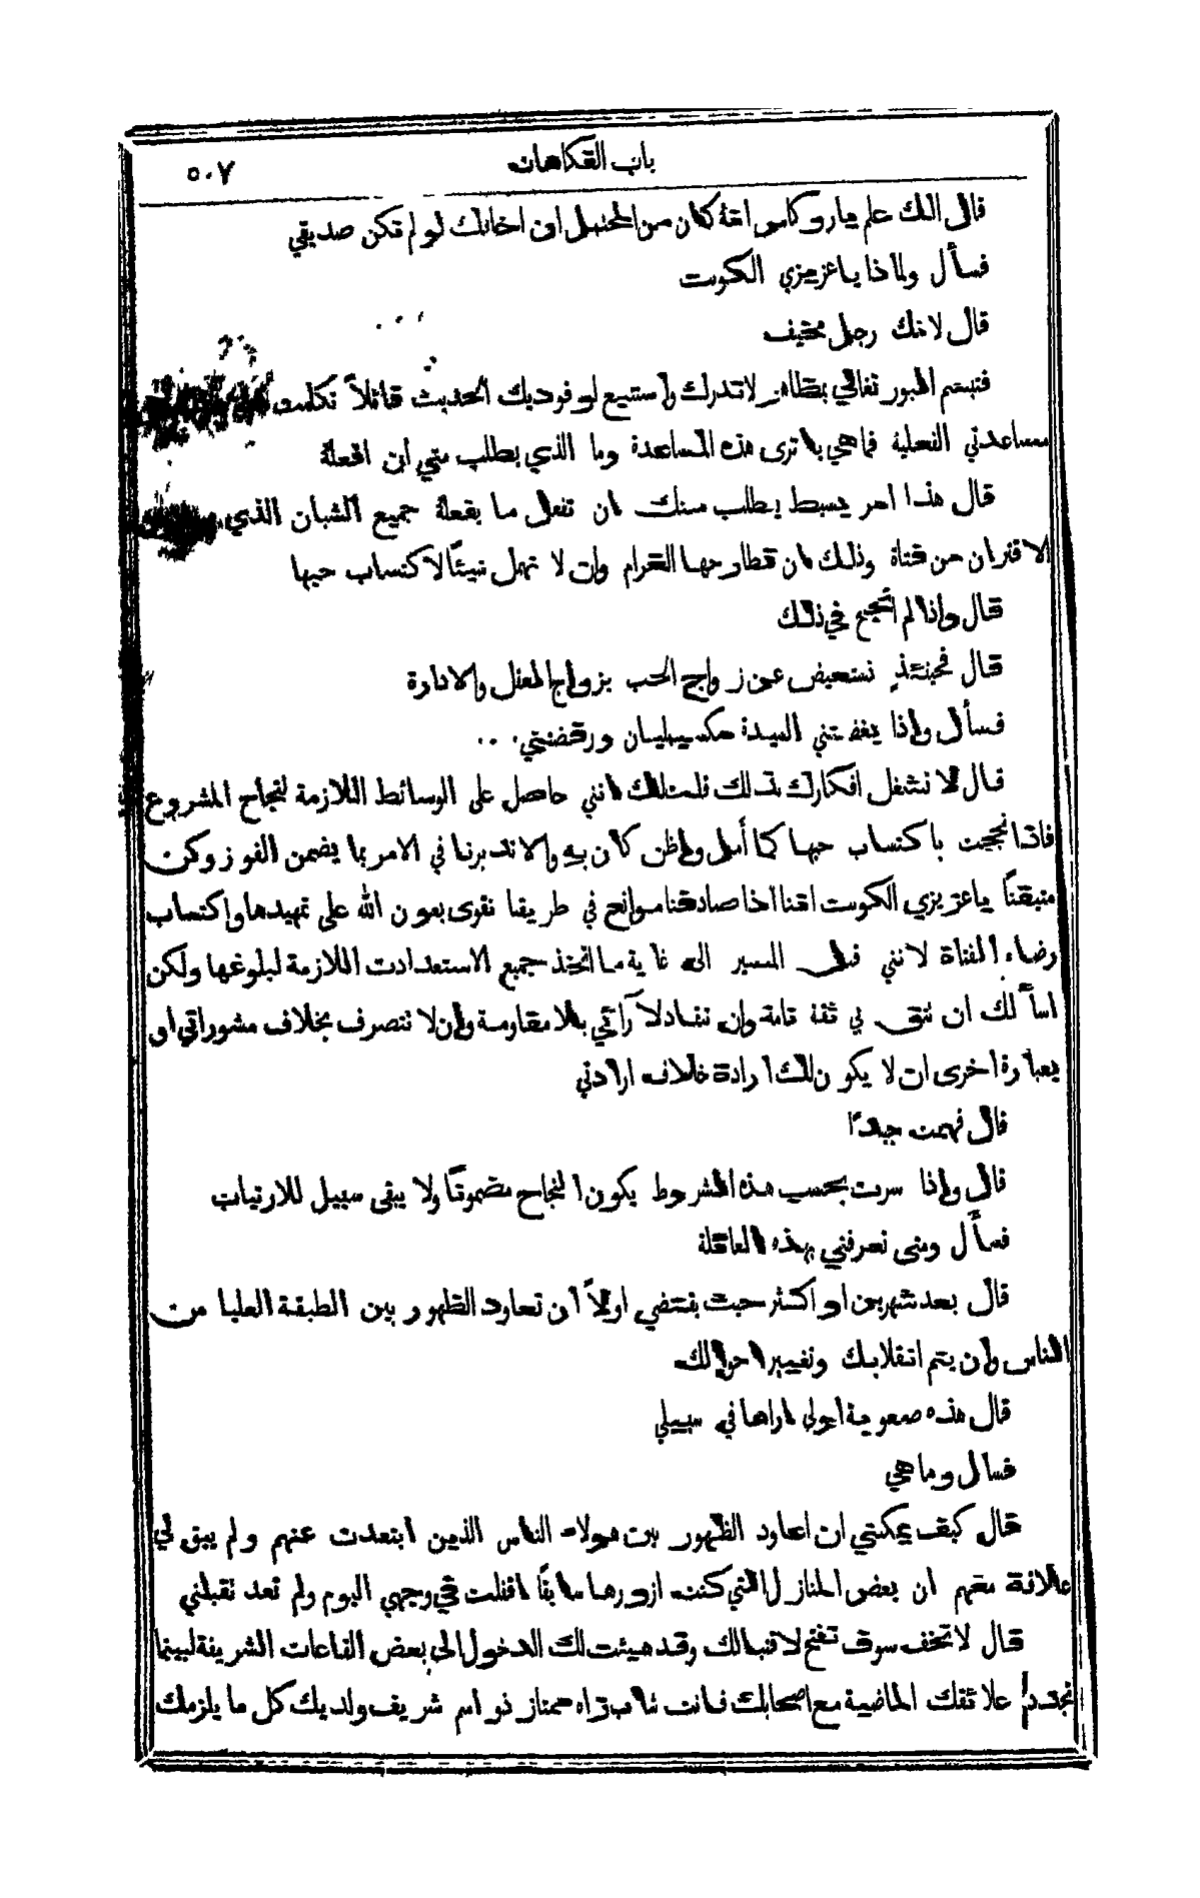 باب الفكاهات ٥٠٧
قال الك علم ياروكامو انهُ كان من المحتمل ان اخانك لو لم تكن صديقي
فسأل ولماذا ياعزيزي الكونت
قال لانك رجل مخيف
فتبسم المبور تفالي بتظاهر لا تدرك واستتبع لوفوديك الحديث قائلاً تكلمت
مساعدتي الفعلية فما هي يا ترى هذه المساعدة وما الذي يطلب مني ان افعلهُ
قال هذا امر بسيط يطلب منك ان تفعل ما يفعلهُ جميع الشبان الذي
الاقتران من فتاة وذلك ان تطارحها الغرام وان لا تهمل شيئًا لاكتساب حبها
قال واذا لم انجح في ذلك
قال فحينئذٍ نستعيض عن زواج الحب بزواج العقل والادارة
فسأل واذا يغضتني السيدة مكسيمليان ورفضتني . . .
قال لا تشغل افكارك بذلك قلت لك انني حاصل على الوسائط اللازمة لنجاح المشروع
فاذا نجحت باكتساب حبها كما أمل واظن كان به والا تدبرنا في الامر بما يضمن الفوز وكن
متيقنًا ياعزيزي الكونت اننا اذا صادفنا موانع في طريقنا نقوى بعون الله على تمهيدها واكتساب
رضاء الفتاة لانني قبل المسير الى غاية ما اتخذ جميع الاستعدادت اللازمة لبلوغها ولكن
اسأَلك ان تثق بي ثقة تامة وان تنقاد لآرائي بلا مقاومة وان لا تتصرف بخلاف مشوراتي او
بعبارة اخرى ان لا يكون لك ارادة خلاف ارادتي
قال فهمت جيدًا
قال واذا سرت بحسب هذه الشروط يكون النجاح مضمونًا ولا يبقى سبيل للارتياب
فسأل ومتى تعرفني بهذه العائلة
قال بعد شهرين او اكثر حيث يقتضي اولاً ان تعاود الظهور بين الطبقة العليا من
الناس وان يتم انقلابك وتغيير احوالك
قال هذه صعوبة اولى اراها في سبيلي
فسال وما هي
قال كيف يمكنني ان اعاود الظهور بين هولاء الناس الذين ابتعدت عنهم ولم يبق لي
علاقة معهم ان بعض المنازل التي كنت ازورها سابقًا اقفلت في وجهي اليوم ولم تعد تقبلني
قال لا تخف سوف تفتح لاقبالك وقد هيئت لك الدخول الى بعض القاعات الشريفة لبينما
نجدد علائقك الماضية مع اصحابك فانت شاب تراه ممتاز ذو اسم شريف ولديك كل ما يلزمك